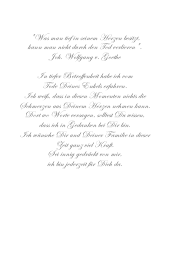 "Was man tief in seinem Herzen besitzt,
kann man nicht durch den Tod verlieren".
Joh. Wolfgang v. Goethe
In tiefer Betroffenheit habe ich vom
Tode Deines Enkels erfahren.
Ich weiß, dass in diesen Momenten nichts die
Schmerzen aus Deinem Herzen nehmen kann.
Dort wo Worte versagen, solltest Du wissen,
dass ich in Gedanken bei Dir bin.
Ich wünsche Dir und Deiner Familie in dieser
Zeit ganz viel Kraft.
Sei innig gedrückt von mir,
ich bin jederzeit für Dich da.